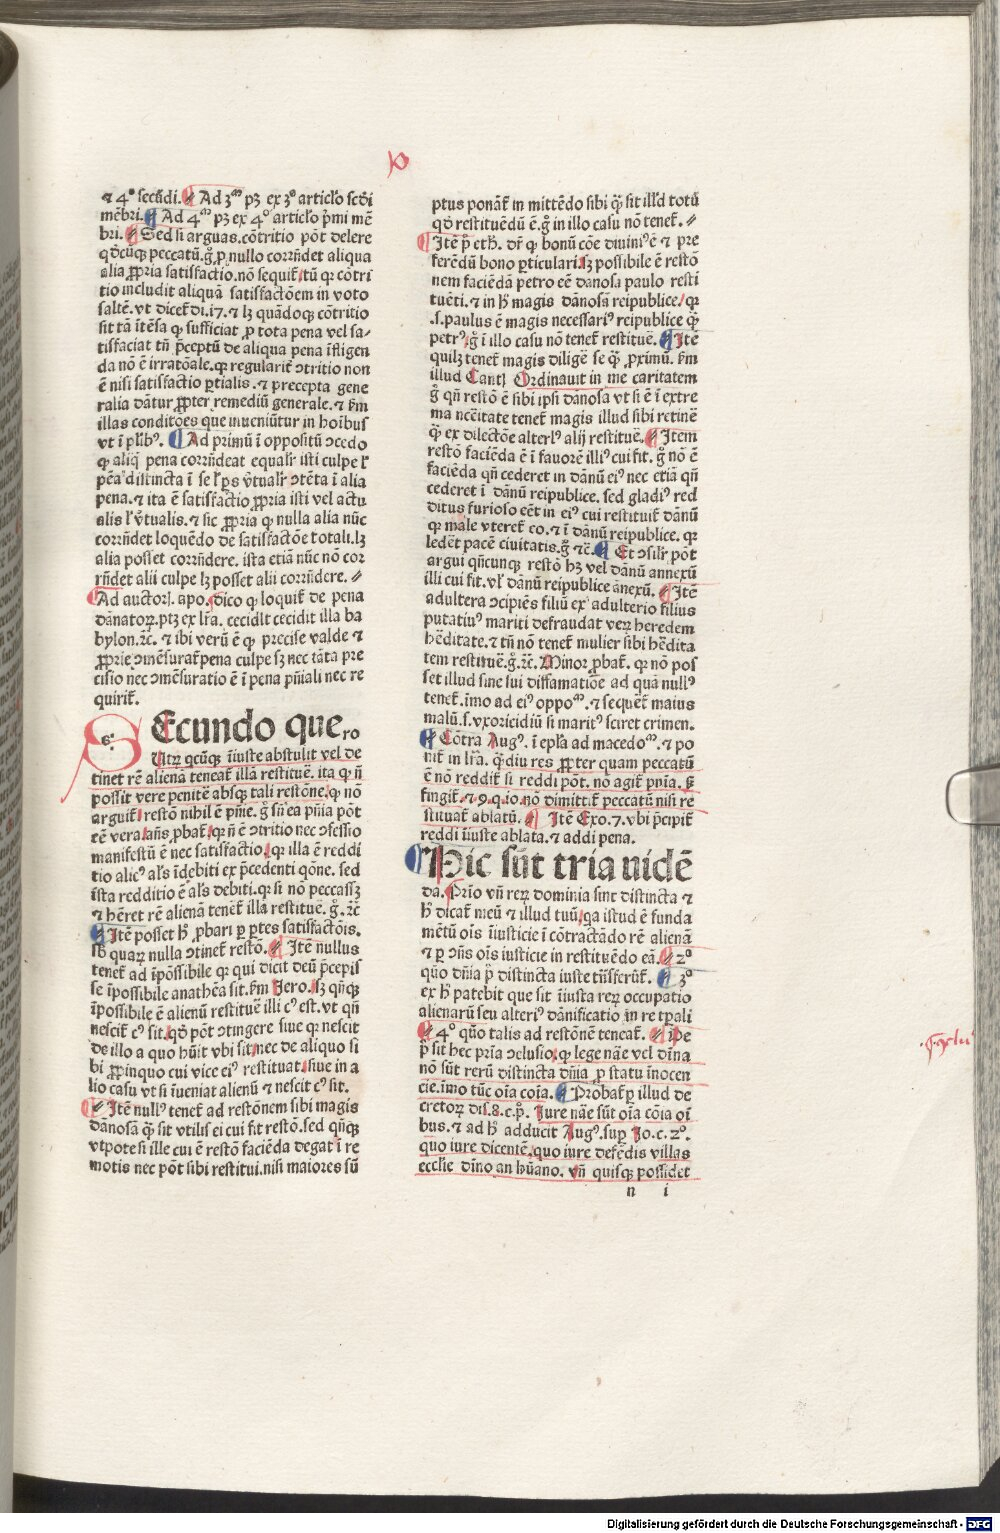 ⁊ 4° secūdi. Ad 3ᵐ pꝫ ex 3° articľo scďi
mēbri. Ad 4ᵐ pꝫ ex 4° articľo p̄mi mē
bri. Sed si arguas. cōtritio pōt delere
qd̄cūqꝫ peccatū. g̊ ꝓ nullo corrn̄det aliqua
alia ꝓpria satisfactio. nō sequit̄ tū qꝛ cōtri
tio includit aliquā satisfactōem in voto
saltē. vt dicet̄ di. 17. ⁊ lꝫ quādoqꝫ cōtritio
sit tā ītēsa ꝙ sufficiat ꝓ tota pena vel sa-
tisfaciat tn̄ p̄ceptū de aliqua pena īfligen
da nō ē irratōale. qꝛ regularit̄ ↄtritio non
ē nisi satisfactio ꝑtialis. ⁊ precepta gene
ralia dātur ꝓpter remediū generale. ⁊ ẜm
illas conditōes que inueniūtur in hoībus
vt ī pľibꝰ. Ad primū ī oppositū ↄcedo
ꝙ aliq̄ pena corrn̄deat equalr̄ isti culpe ľ
pēa distincta ī se ľ ꝑs v̄tualr̄ ↄtēta ī alia
pena. ⁊ ita ē satisfactio ꝓpria isti vel actu
alis ľ v̄tualis. ⁊ sic ꝓpria ꝙ nulla alia nūc
corrn̄det loquēdo de satisfactōe totali. lꝫ
alia posset corrn̄dere. ista etiā nūc nō cor
rn̄det alii culpe lꝫ posset alii corrn̄dere.
Ad auctorꝫ. apo. dico ꝙ loquit̄ de pena
dānatorꝝ. ptꝫ ex lr̄a. cecidit cecidit illa ba
bylon. ⁊c̄. ⁊ ibi verū ē ꝙ precise valde ⁊
ꝓprie ↄmēsurat̄ pena culpe sꝫ nec tāta pre
cisio nec ↄmēsuratio ē ī pena pn̄iali nec re
quirit̄.
SEcundo quero
6:
Utrꝫ qcūqꝫ īiuste abstulit vel de
tinet rē alienā teneat̄ illā restituē. ita ꝙ n̄
possit vere penitē absqꝫ tali restōne. ꝙ nō
arguit̄ restō nihil ē pn̄ie. g̊ sn̄ ea pn̄ia pōt
eē vera. an̄s ꝓbat̄ qꝛ n̄ ē ↄtritio nec ↄfessio
manifestū ē nec satisfactio. qꝛ illa ē reddi
tio alicꝰ al̄s īdebiti ex p̄cedenti qōne. sed
ista redditio ē al̄s debiti. qꝛ si nō peccassꝫ
⁊ hēret rē alienā tenet̄ illa restituē. g̊. ⁊c̄
Itē posset h̄ ꝓbari ꝑ ꝑtes satisfactōis.
sb̄ quarꝝ nulla ↄtinet̄ restō. Itē nullus
tenet̄ ad īpōssibile qꝛ qui dicit deū p̄cepis
se īpossibile anathēa sit. ẜm Jero. sꝫ qn̄qꝫ
īpossibile ē alienū restituē illi cꝰ est. vt qn̄
nescit̄ cꝰ sit. qd̄ pōt ↄtingere siue qꝛ nescit
de illo a quo hūit vbi sit. nec de aliquo si
bi ꝓpinquo cui vice eiꝰ restituat. siue in a
lio casu vt si īueniat alienū ⁊ nescit cꝰ sit.
Itē nullꝰ tenet̄ ad restōnem sibi magis
dānosā qꝫ̄ sit vtilis ei cui fit restō. sed qn̄qꝫ
vtpote si ille cui ē restō faciēda degat ī re
motis nec pōt sibi restitui. nisi maiores sū
ptus ponāt̄ in mittēdo sibi qꝫ̄ sit illd̄ totū
qd̄ restituēdū ē. g̊ in illo casu nō tenet̄.
Itē p̄ eth̄. dr̄ ꝙ bonū cōe diuiniꝰ ē ⁊ pre
ferēdū bono ꝑticulari. sꝫ possibile ē restō
nem faciēdā petro eē dānosā paulo resti
tuēti. ⁊ in h̄ magis dānosā reipublice. qꝛ
.s. paulus ē magis necessariꝰ reipublice qꝫ̄
petrꝰ. g̊ ī illo casu nō tenet̄ restituē. Itē
quilꝫ tenet̄ magis diligē se qꝫ̄ ꝓximū. ẜm
illud Cantꝭ Ordinauit in me caritatem
g̊ qn̄ restō ē sibi ipsi dānosa vt si ē ī extre
ma nccītate tenet̄ magis illud sibi retinē
qꝫ̄ ex dilectōe alterľ alij restituē. Item
restō faciēda ē ī fauorē illiꝰ cui fit. g̊ nō ē
faciēda qn̄ cederet in dānū eiꝰ nec etiā qn̄
cederet ī dānū reipublice. sed gladiꝰ red
ditus furioso eēt in eiꝰ cui restituit̄ dānū
qꝛ male vteret̄ eo. ⁊ ī dānū reipublice. qꝛ
ledēt pacē ciuitatis. g̊ ⁊c̄. Et ↄsilr̄ pōt
argui qn̄cunqꝫ restō hꝫ vel dānū annexū
illi cui fit. vľ dānū reipublice ānexū. Itē
adultera ↄcipiēs filiū ex adulterio filius
putatiuꝰ mariti defraudat verꝫ heredem
hēditate. ⁊ tn̄ nō tenet̄ mulier sibi hēdita
tem restituē. g̊. ⁊c̄. Minor ꝓbat̄. qꝛ nō pos
set illud sine sui diffamatiōe ad quā nullꝰ
tenet̄. īmo ad eiꝰ oppoᵐ. ⁊ sequet̄ maius
malū. s. vxoricidiū si maritꝰ sciret crimen.
Cōtra Augꝰ. ī epľa ad macedoᵐ. ⁊ po
nit̄ in lr̄a. q̄diu res ꝓpter quam peccatū
ē nō reddit̄ si reddi pōt. nō agit̄ pn̄ia. sꝫ
fingit̄. ⁊ 9. q. io. nō dimittit̄ peccatū nisi re
stituat̄ ablatū. Itē Exo. 7. vbi p̄cipit̄
reddi īiuste ablata. ⁊ addi pena.
Hic sūt tria uidē
da. Prīo vn̄ rerꝝ dominia sint distincta ⁊
h̄ dicat̄ meū ⁊ illud tuū. qa istud ē funda
mētū oīs īiusticie ī cōtractādo rē alienā
⁊ ꝑ ↄn̄s oīs iusticie in restituēdo eā. 2°
quō dn̄ia p̄ distincta iuste tn̄sferūt̄. 3°
ex h̄ patebit que sit īiusta rerꝝ occupatio
alienarū seu alteriꝰ dānificatio in re tp̄ali
4° quō talis ad restōnē teneat̄. De
p̄ sit hec pria ↄclusio. ꝙ lege nāe vel dīna
nō sūt rerū distincta dn̄ia ꝓ statu īnocen
cie. īmo tūc oīa coīa. Probat̄ ꝑ illud de
cretorꝝ dis. 8. c. p̄. Jure nāe sūt oīa cōia oī
bus. ⁊ ad h̄ adducit Augꝰ. suꝑ Jo. c. 2°.
quo iure dicentē. quo iure defēdis villas
ecclīe dīno an hūano. vn̄ quisqꝫ possidet
n i
Digitalisierung gefördert durch die Deutsche Forschungsgemeinschaft - DFG